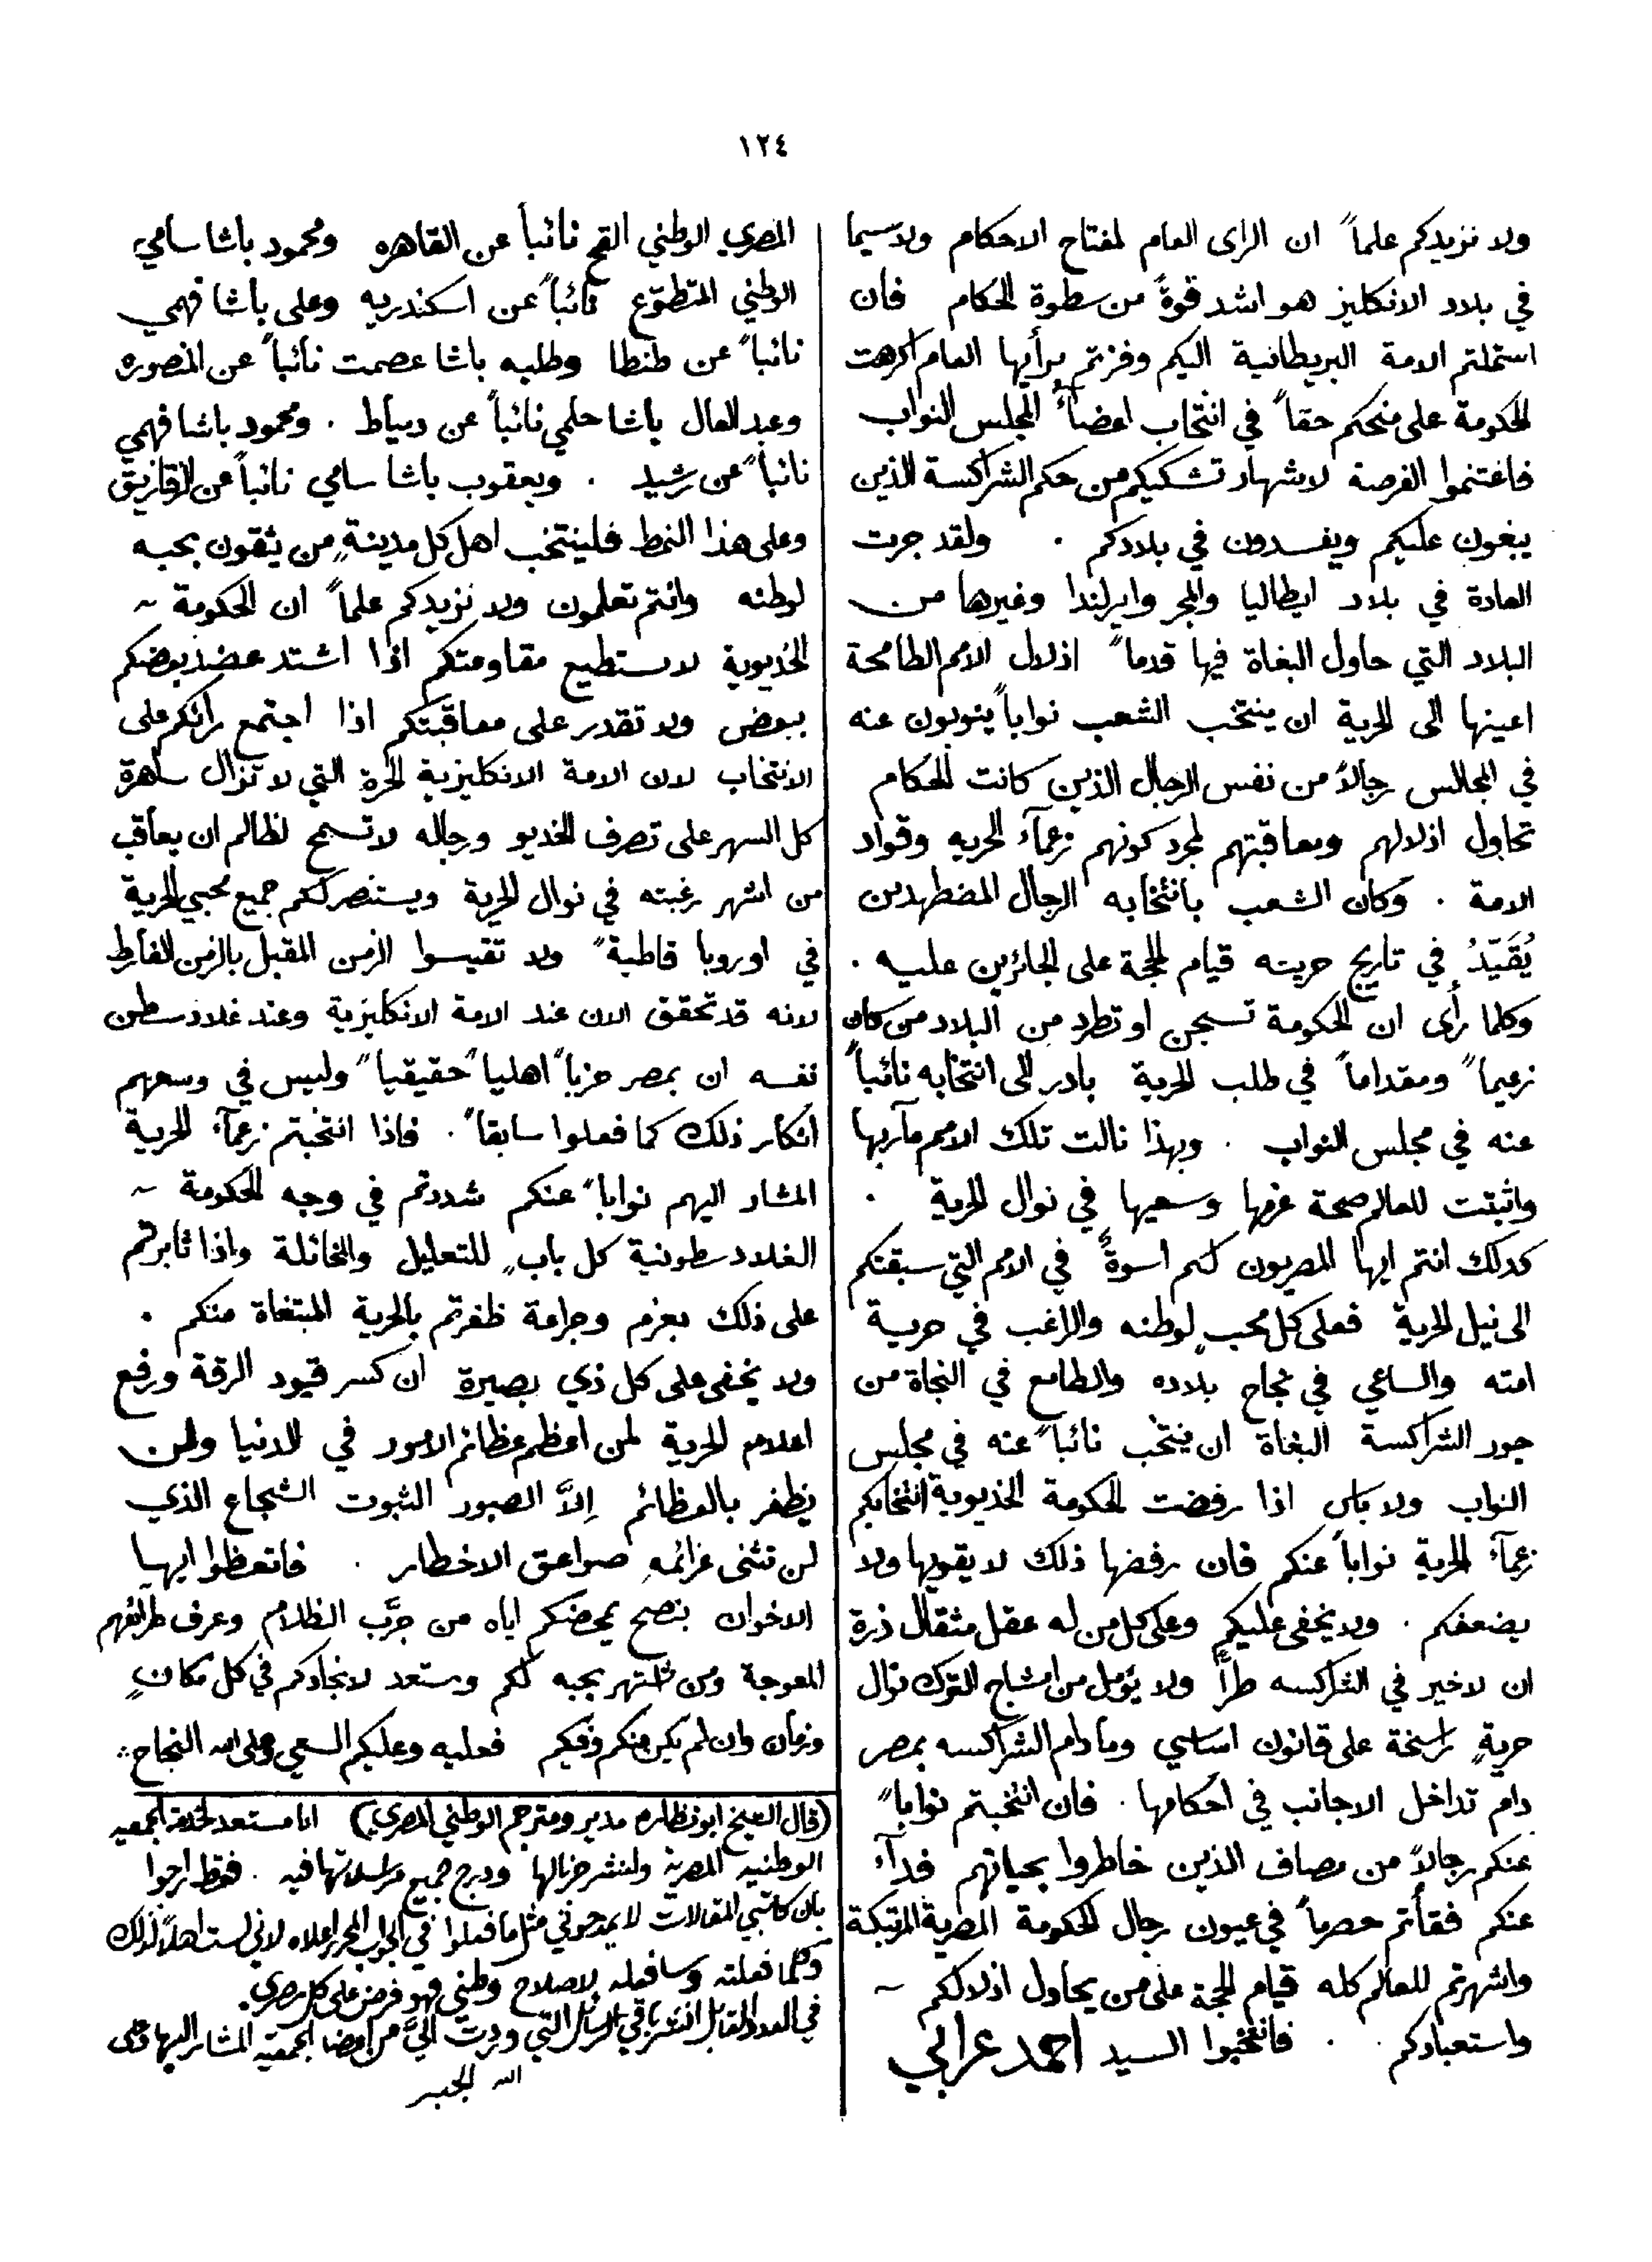 ١٢٤
ولا نزيدكم علماً ان الراى العام لمفتاح الاحكام ولاسيما
في بلاد الانكليز هو اشد قوةً من سطوة الحكام فان
استملتم الامة البريطانية اليكم وفزتم برأيها العام اكرهت
الحكومة على منحكم حقاً في انتخاب اعضآء لمجلس النواب
فاغتنموا الفرصة لاشهار تشكيكم من حكم الشراكسة الذين
يبغون عليكم ويفسدون في بلادكم . ولقد جرت
العادة في بلاد ايطاليا والمجر وايرلندا وغيرها من
البلاد التي حاول البغاة فيها قدماً اذلال الامم الطامحة
اعينها الى الحرية ان ينتخب الشعب نواباً ينوبون عنه
في المجالس رجالاً من نفس الرجال الذين كانت الحكام
تحاول اذلالهم ومعاقبتهم لمجرد كونهم زعمآء الحريه وقواد
الامة . وكان الشعب بانتخابه الرجال المضطهدين
يُقَيّدُ في تاريخ حريته قيام الحجة على الجائرين عليه .
وكلما رأى ان الحكومة تسجن او تطرد من البلاد من كان
زعيماً ومقداماً في طلب الحرية بادر الى انتخابه نائباً
عنه في مجلس النواب . وبهذا نالت تلك الامم مآربها
واثبتت للعالم صحة عزمها وسعيها في نوال الحرية .
كذلك انتم ايها المصريون لكم اسوةٌ في الامم التي سبقتكم
الى نيل الحرية فعلى كل محبٍ لوطنه والراغب في حرية
امته والساعي في نجاح بلاده والطامع في النجاة من
جور الشراكسة البغاة ان ينتخب نائباً عنه في مجلس
النواب ولا باس اذا رفضت الحكومة الخديوية انتخابكم
زعمآء الحرية نواباً عنكم فان رفضها ذلك لا يقويها ولا
يضعفكم . ولا يخفى عليكم وعلى كل من له عقل مثقال ذرة
ان لا خير في الشراكسه طراً ولا يؤمل من امشاج الترك نوال
حريةٍ راسخة على قانون اساسي وما دام الشراكسه بمصر
دام تداخل الاجانب في احكامها . فان انتخبتم نواباً
عنكم رجالاً من مصاف الذين خاطروا بحياتهم فدآء
عنكم فقأتم حصرماً في عيون رجال الحكومة المصرية المرتبكة
واشهرتم للعالم كله قيام الحجة على من يحاول اذلالكم ~
واستعبادكم . . فانتخبوا السيد احمد عرابي
المصري الوطني القح نائباً عن القاهره ومحمود باشا سامي
الوطني المتطوّع نائباً عن اسكندريه وعلى باشا فهمي
نائباً عن طنطا وطلبه باشا عصمت نائباً عن المنصوره
وعبد العال باشا حلمي نائباً عن دمياط . ومحمود باشا فهمي
نائباً عن رشيد . ويعقوب باشا سامي نائباً عن الزقازيق
وعلى هذا النمط فلينتخب اهل كل مدينةٍ من يثقون بحبه
لوطنه وانتم تعلمون ولا نزيدكم علماً ان الحكومة ~
الخديوية لا تستطيع مقاومتكم اذا اشتد عضد بعضكم
ببعض ولا تقدر على معاقبتكم اذا اجتمع رائكم على
الانتخاب لان الامة الانكليزية الحرة التي لا تزال ساهرة
كل السهر على تصرف الخديو ورجاله لا تسمح لظالم ان يعاقب
من اشهر رغبته في نوال الحرية ويستنصر لكم جميع محبي الحرية
في اوروبا قاطبةً ولا تقيسوا الزمن المقبل بالزمن الفارط
لانه قد تحقق الان عند الامة الانكليزية وعند غلادسطن
نفسه ان بمصر حزباً اهلياً حقيقياً وليس في وسعهم
انكار ذلك كما فعلوا سابقاً . فاذا انتخبتم زعمآء الحرية
المشار اليهم نواباً عنكم شددتم في وجه الحكومة ~
الغلادسطونية كل بابٍ للتعليل والمخاتلة واذا ثابرتم
على ذلك بعزم وجراءة ظفرتم بالحرية المبتغاة منكم .
ولا يخفى على كل ذي بصيرة ان كسر قيود الرقة ورفع
اعلام الحرية لمن اعظم عظائم الامور في الدنيا ولن
يظفر بالعظائم إلاَّ الصبور الثبوت الشجاع الذي
لن تثنى عزائمه صواعق الاخطار . فاتعظوا ايها
الاخوان بنصح يمحضكم اياه من جرَّب الظلام وعرف طرائقهم
المعوجة ومن اشتهر بحبه لكم ومستعد لانجادكم في كل مكانٍ
وزمان وان لم يكن منكم وفيكم فعليه وعليكم السعي وعلى الله النجاح
(قال الشيخ ابو نظاره مدير ومترجم الوطني المصري) انا مستعد لخدمة الجمعيه
الوطنيه المصرية ولنشر جرنالها ودرج جميع مراسلاتها فيه . فقط ارجوا
بان كاتبي المقالات لا يمدحوني مثل ما فعلوا في الجواب المحرر اعلاه لاني لست اهلاً لذلك
وكلما فعلته وسافعله لاصلاح وطني فهو فرض على كل مصري .
في العدد المقابل انشر باقي الرسائل التي وردت اليّ من اعضا الجمعيه المشار اليها
الله